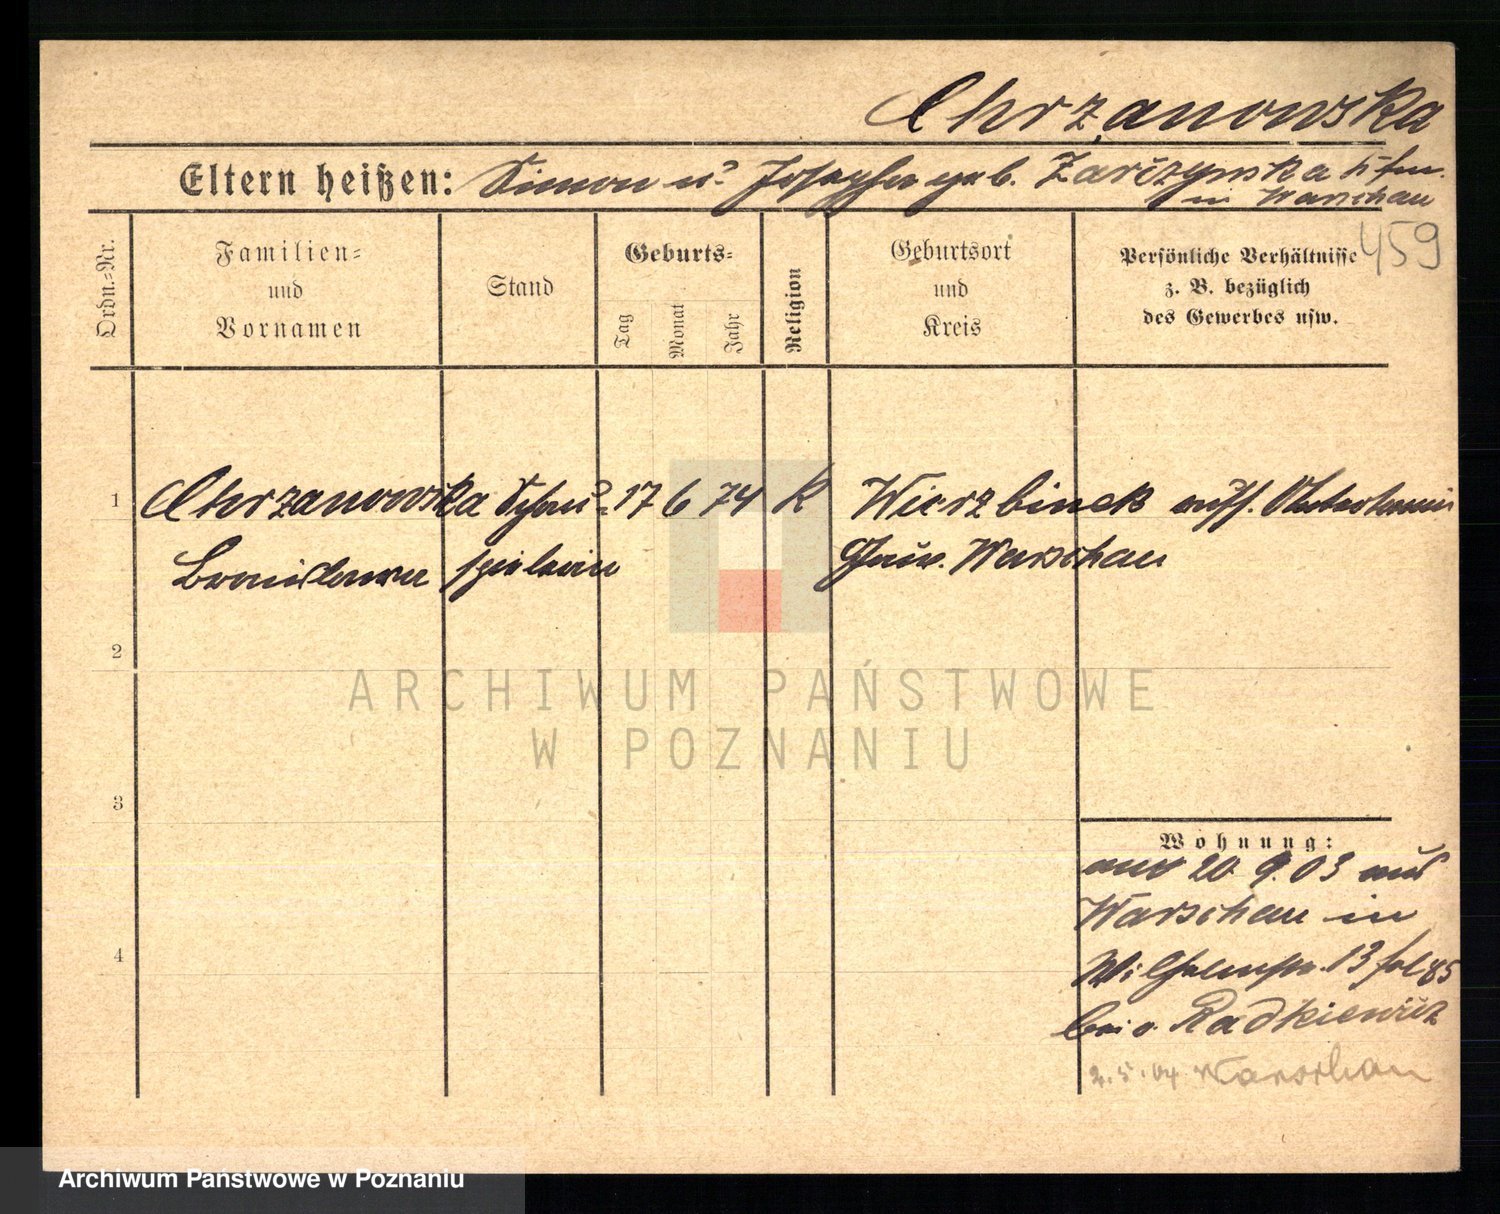 Chrzanowska
Eltern heißen: Simon u. Josepha geb. Zarczynska
in Warschau
459
Ordn.-Nr.
Familien-
und
Vornamen
Stand
Geburts-
Tag
Monat
Jahr
Religion
Geburtsort
und
Kreis
Persönliche Verhältnisse
z. B. bezüglich
des Gewerbes usw.
1 Chrzanowska Schau- 17 6 74 K Wierzbinek russ.
Bronislawa spielerin Gouv. Warschau
2
3
4
Wohnung:
20. 9. 03 aus
Warschau in
Wilhelmstr. 13
bei v. Radkiewicz
2. 5. 04 Warschau
ARCHIWUM PAŃSTWOWE
W POZNANIU
Archiwum Państwowe w Poznaniu